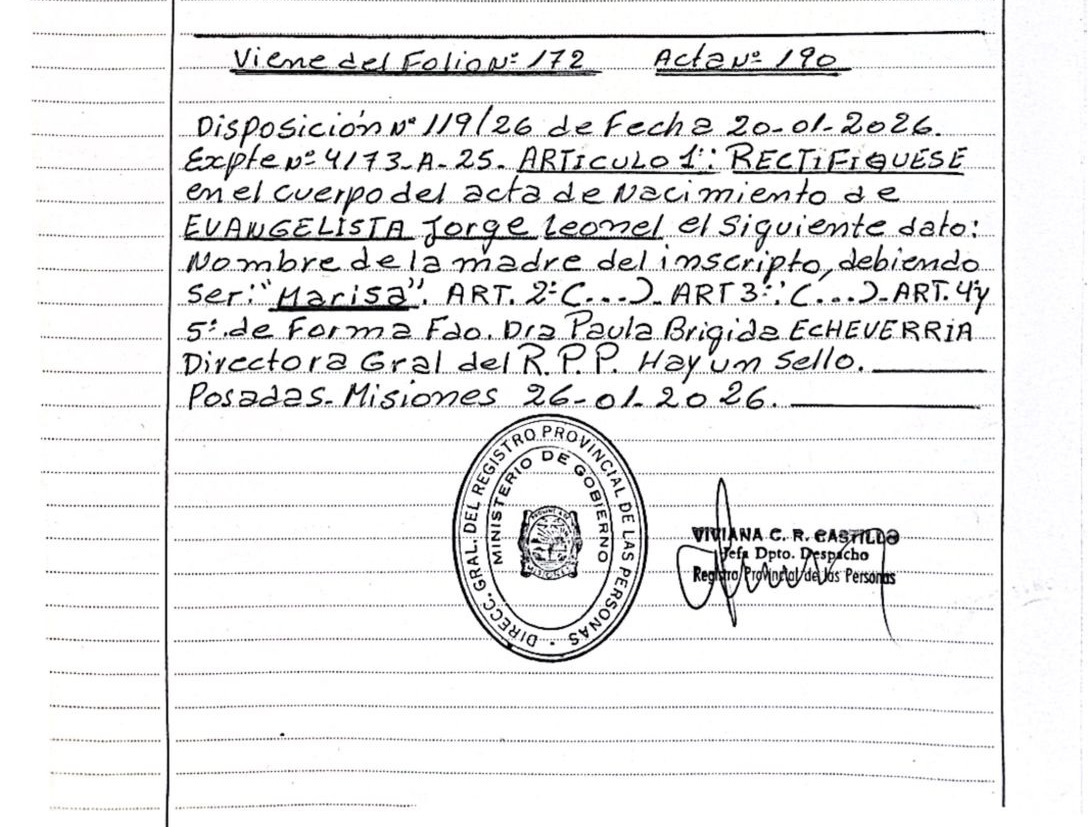 Viene del Folio Nº 172 Acta Nº 190
Disposición Nº 119/26 de Fecha 20-01-2026.
Expte Nº 4173-A-25. ARTICULO 1º: RECTIFIQUESE
en el cuerpo del acta de Nacimiento de
EVANGELISTA Jorge Leonel el Siguiente dato:
Nombre de la madre del inscripto, debiendo
Ser: "Marisa". ART. 2º (...)_ ART 3º: (...)_ ART. 4º y
5º. de Forma Fdo. Dra Paula Brigida ECHEVERRIA
Directora Gral del R. P. P. Hay un Sello.
Posadas-Misiones 26-01-2026.
DIRECC. GRAL. DEL REGISTRO PROVINCIAL DE LAS PERSONAS
MINISTERIO DE GOBIERNO
MISIONES
VIVIANA C. R. CASTILLO
Jefa Dpto. Despacho
Registro Provincial de las Personas